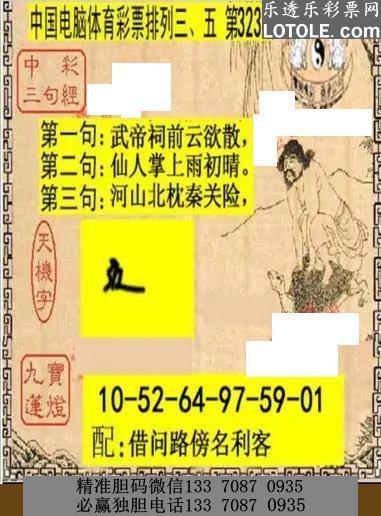 乐透乐彩票网
LOTOLE.COM
中国电脑体育彩票排列三、五 第323
中彩
三句經
第一句：武帝祠前云欲散，
第二句：仙人掌上雨初晴。
第三句：河山北枕秦关险，
天機字
九寶
蓮燈
10-52-64-97-59-01
配：借问路傍名利客
精准胆码微信133 7087 0935
必赢独胆电话133 7087 0935